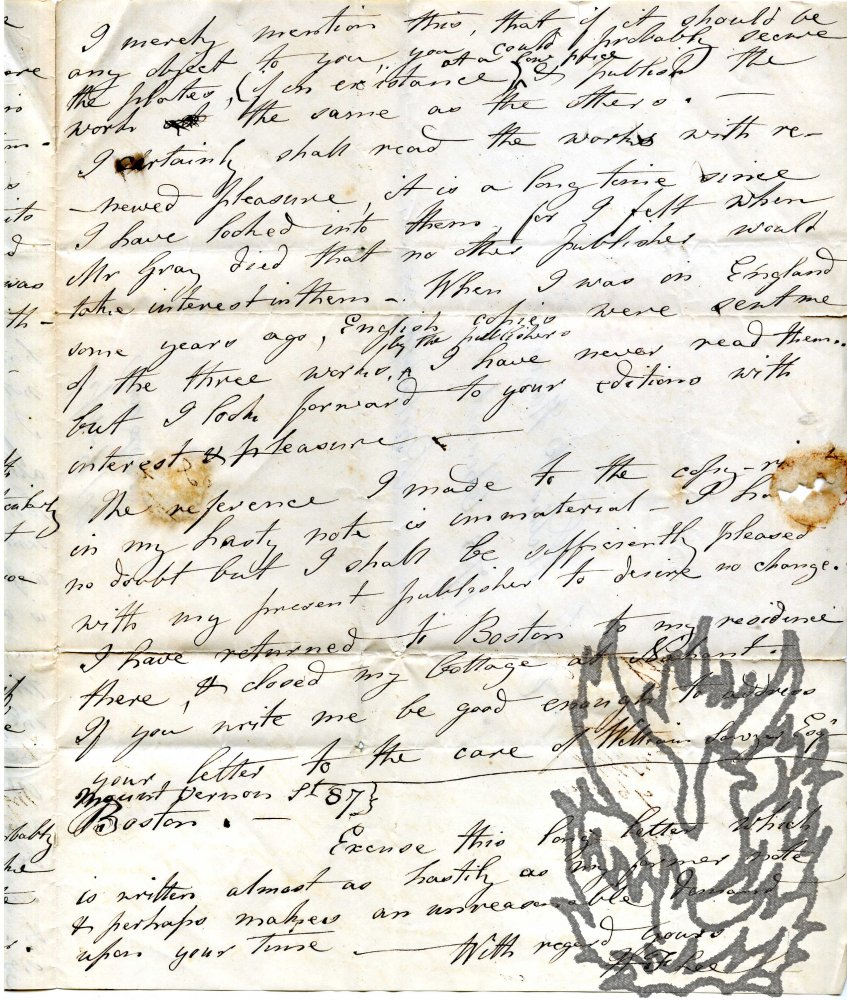 I merely mention this, that if it should be
any object to you, you could probably secure
the plates, (if in existance at a low price) & publish the
work the same as the others. —
I certainly shall read the works with re-
-newed pleasure, it is a long time since
I have looked into them, for I felt when
Mr Gray died that no other publisher would
take interest in them —. When I was in England
some years ago, English copies were sent me
of the three works, by the publishers I have never read them..
but I look forward to your editions with
interest & pleasure. —
The reference I made to the copy-ri
in my hasty note is immaterial — I ha
no doubt but I shall be sufficiently pleased
with my present publisher to desire no change.
I have returned to Boston to my residence
there, & closed my Cottage at Nahant.
If you write me be good enough to address
your letter to the care of William Esqr
Mount Vernon St 87}
Boston. —
Excuse this long letter which
is written almost as hastily as my former note
& perhaps makes an unreasonable demand
upon your time — With regard yours
H F Lee